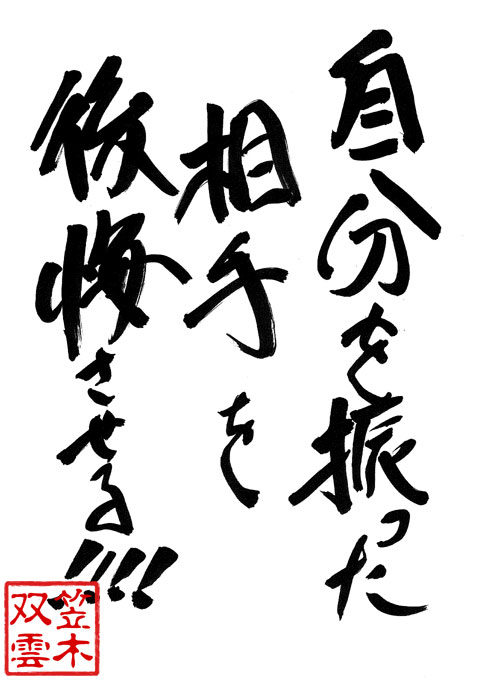 自分を振った
相手を
後悔させる!!!!
笠木
双雲